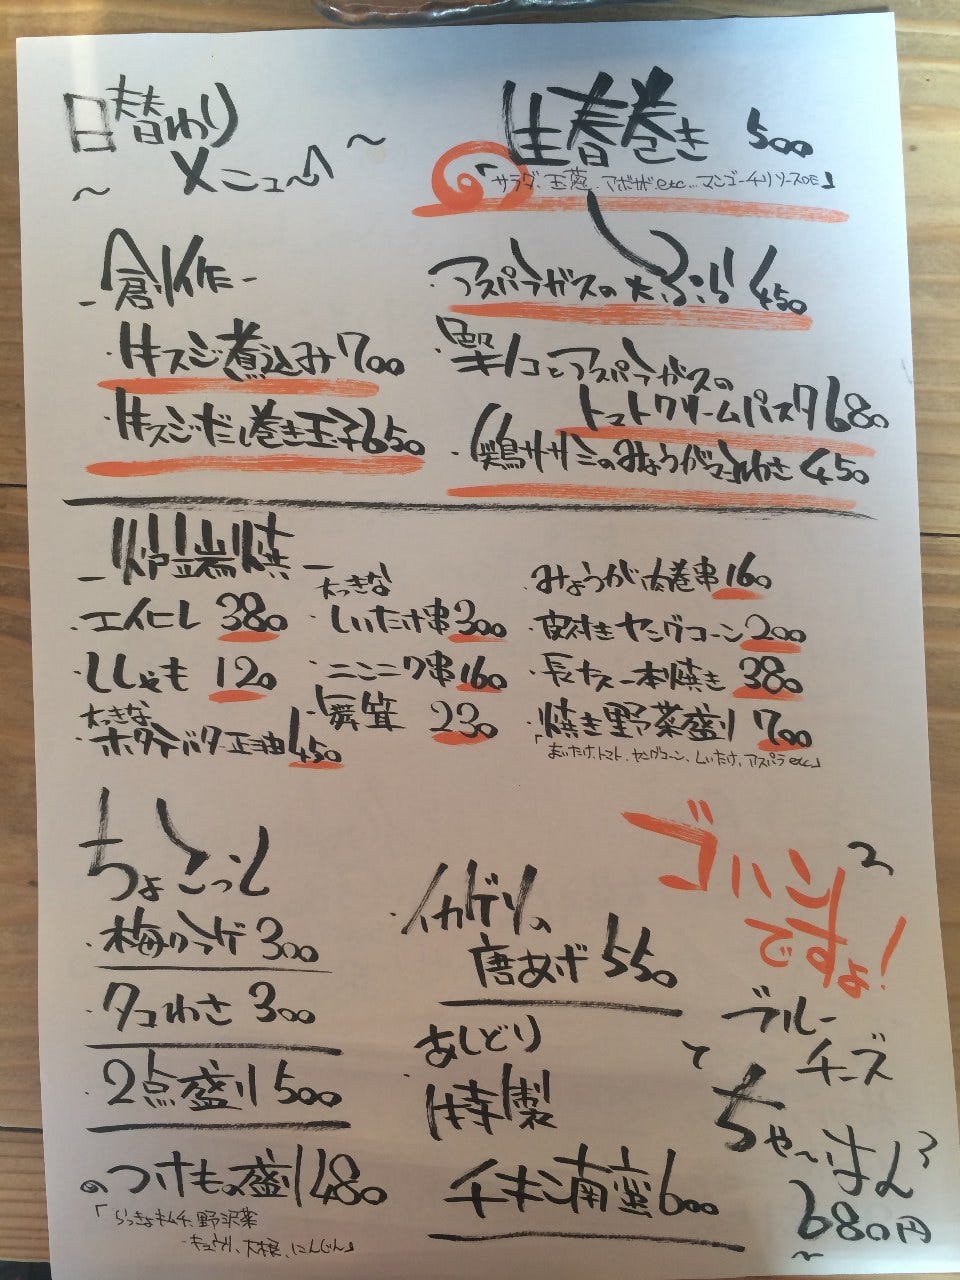 日替わり
〜メニュー〜
生春巻き 500
「サラダ、玉葱、アボガド、etc...マンゴーチリソースOE」
-創作-
・牛スジ煮込み 700
・牛スジだし巻き玉子 650
・アスパラガスの天ぷら 450
・キノコとアスパラガスの
トマトクリームパスタ 680
・鶏ササミのみょうがマヨわさ 450
-炉端焼-
・エイヒレ 380
・ししゃも 120
大っきな
・ホタテバター正油 450
大っきな
・しいたけ串 300
・ニンニク串 160
・舞茸 230
・みょうが肉巻串 160
・皮付きヤングコーン 200
・長ナス一本焼き 380
・焼き野菜盛り 700
「まいたけ、トマト、ヤングコーン、しいたけ、アスパラetc」
ちょこっと
・梅クラゲ 300
・タコわさ 300
・2点盛り 500
つけもの盛り 480
「らっきょ、キムチ、野沢菜
・キュウリ、大根、にんじん」
・イカゲソの
唐あげ 550
・あしどり
特製
チキン南蛮 600
ゴいこ
ですよ!
ブルー
チーズ
て
ちゃーはん
680円